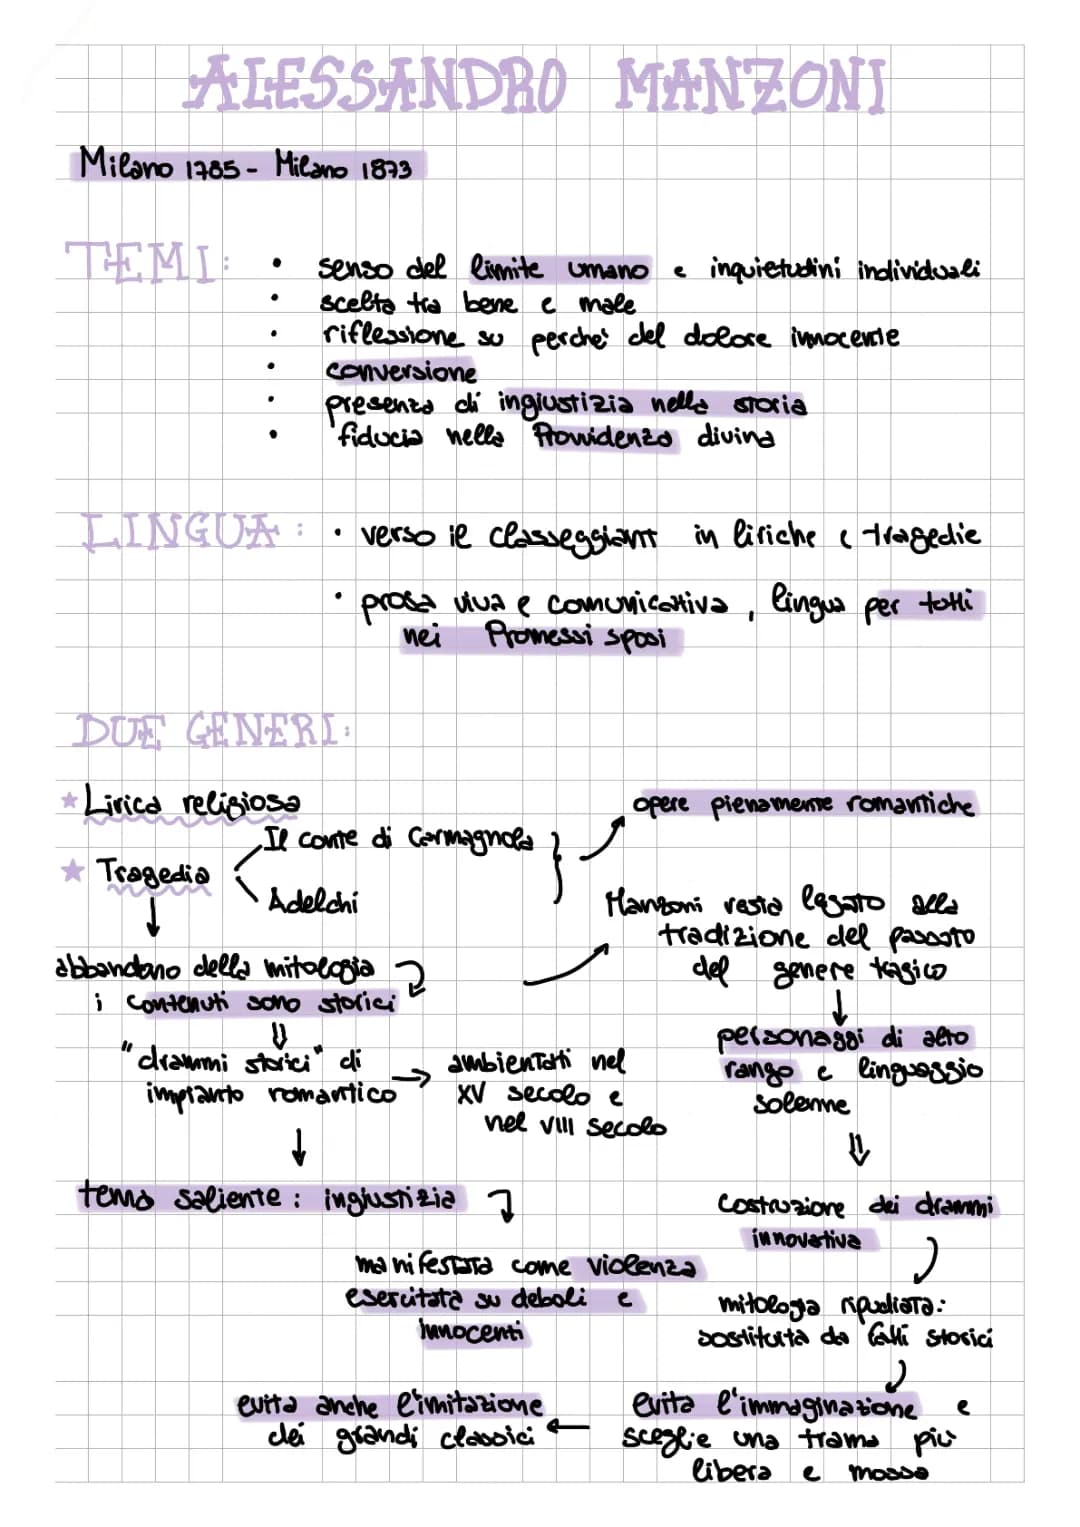 ALESSANDRO MANZONI
Milano 1785 - Milano 1873
TEMI:
• senso del limite umano e inquietudini individuali
• scelta tra bene e male
• riflessione su perche' del dolore innocente
• conversione
• presenza di ingiustizia nella storia
• fiducia nella Provvidenza divina
LINGUA:
• verso il classeggiant in liriche e tragedie
• prosa viva e comunicativa, lingua per tutti
nei Promessi sposi
DUE GENERI:
★ Lirica religiosa
★ Tragedia
Il conte di Carmagnola
Adelchi
opere pienamente romantiche
Manzoni resta legato alla
tradizione del passato
del genere tragico
↓
personaggi di alto
rango e linguaggio
solenne
⇓
costruzione dei drammi
innovativa
mitologia ripudiata:
sostituita da fatti storici
evita l'immaginazione e
sceglie una trama più
libera e mossa
←
evita anche l'imitazione
dei grandi classici
↓
abbandono della mitologia
i contenuti sono storici
⇓
"drammi storici" di
impianto romantico
→
ambientati nel
XV secolo e
nel VIII secolo
↓
tema saliente: ingiustizia
manifestata come violenza
esercitata su deboli e
innocenti